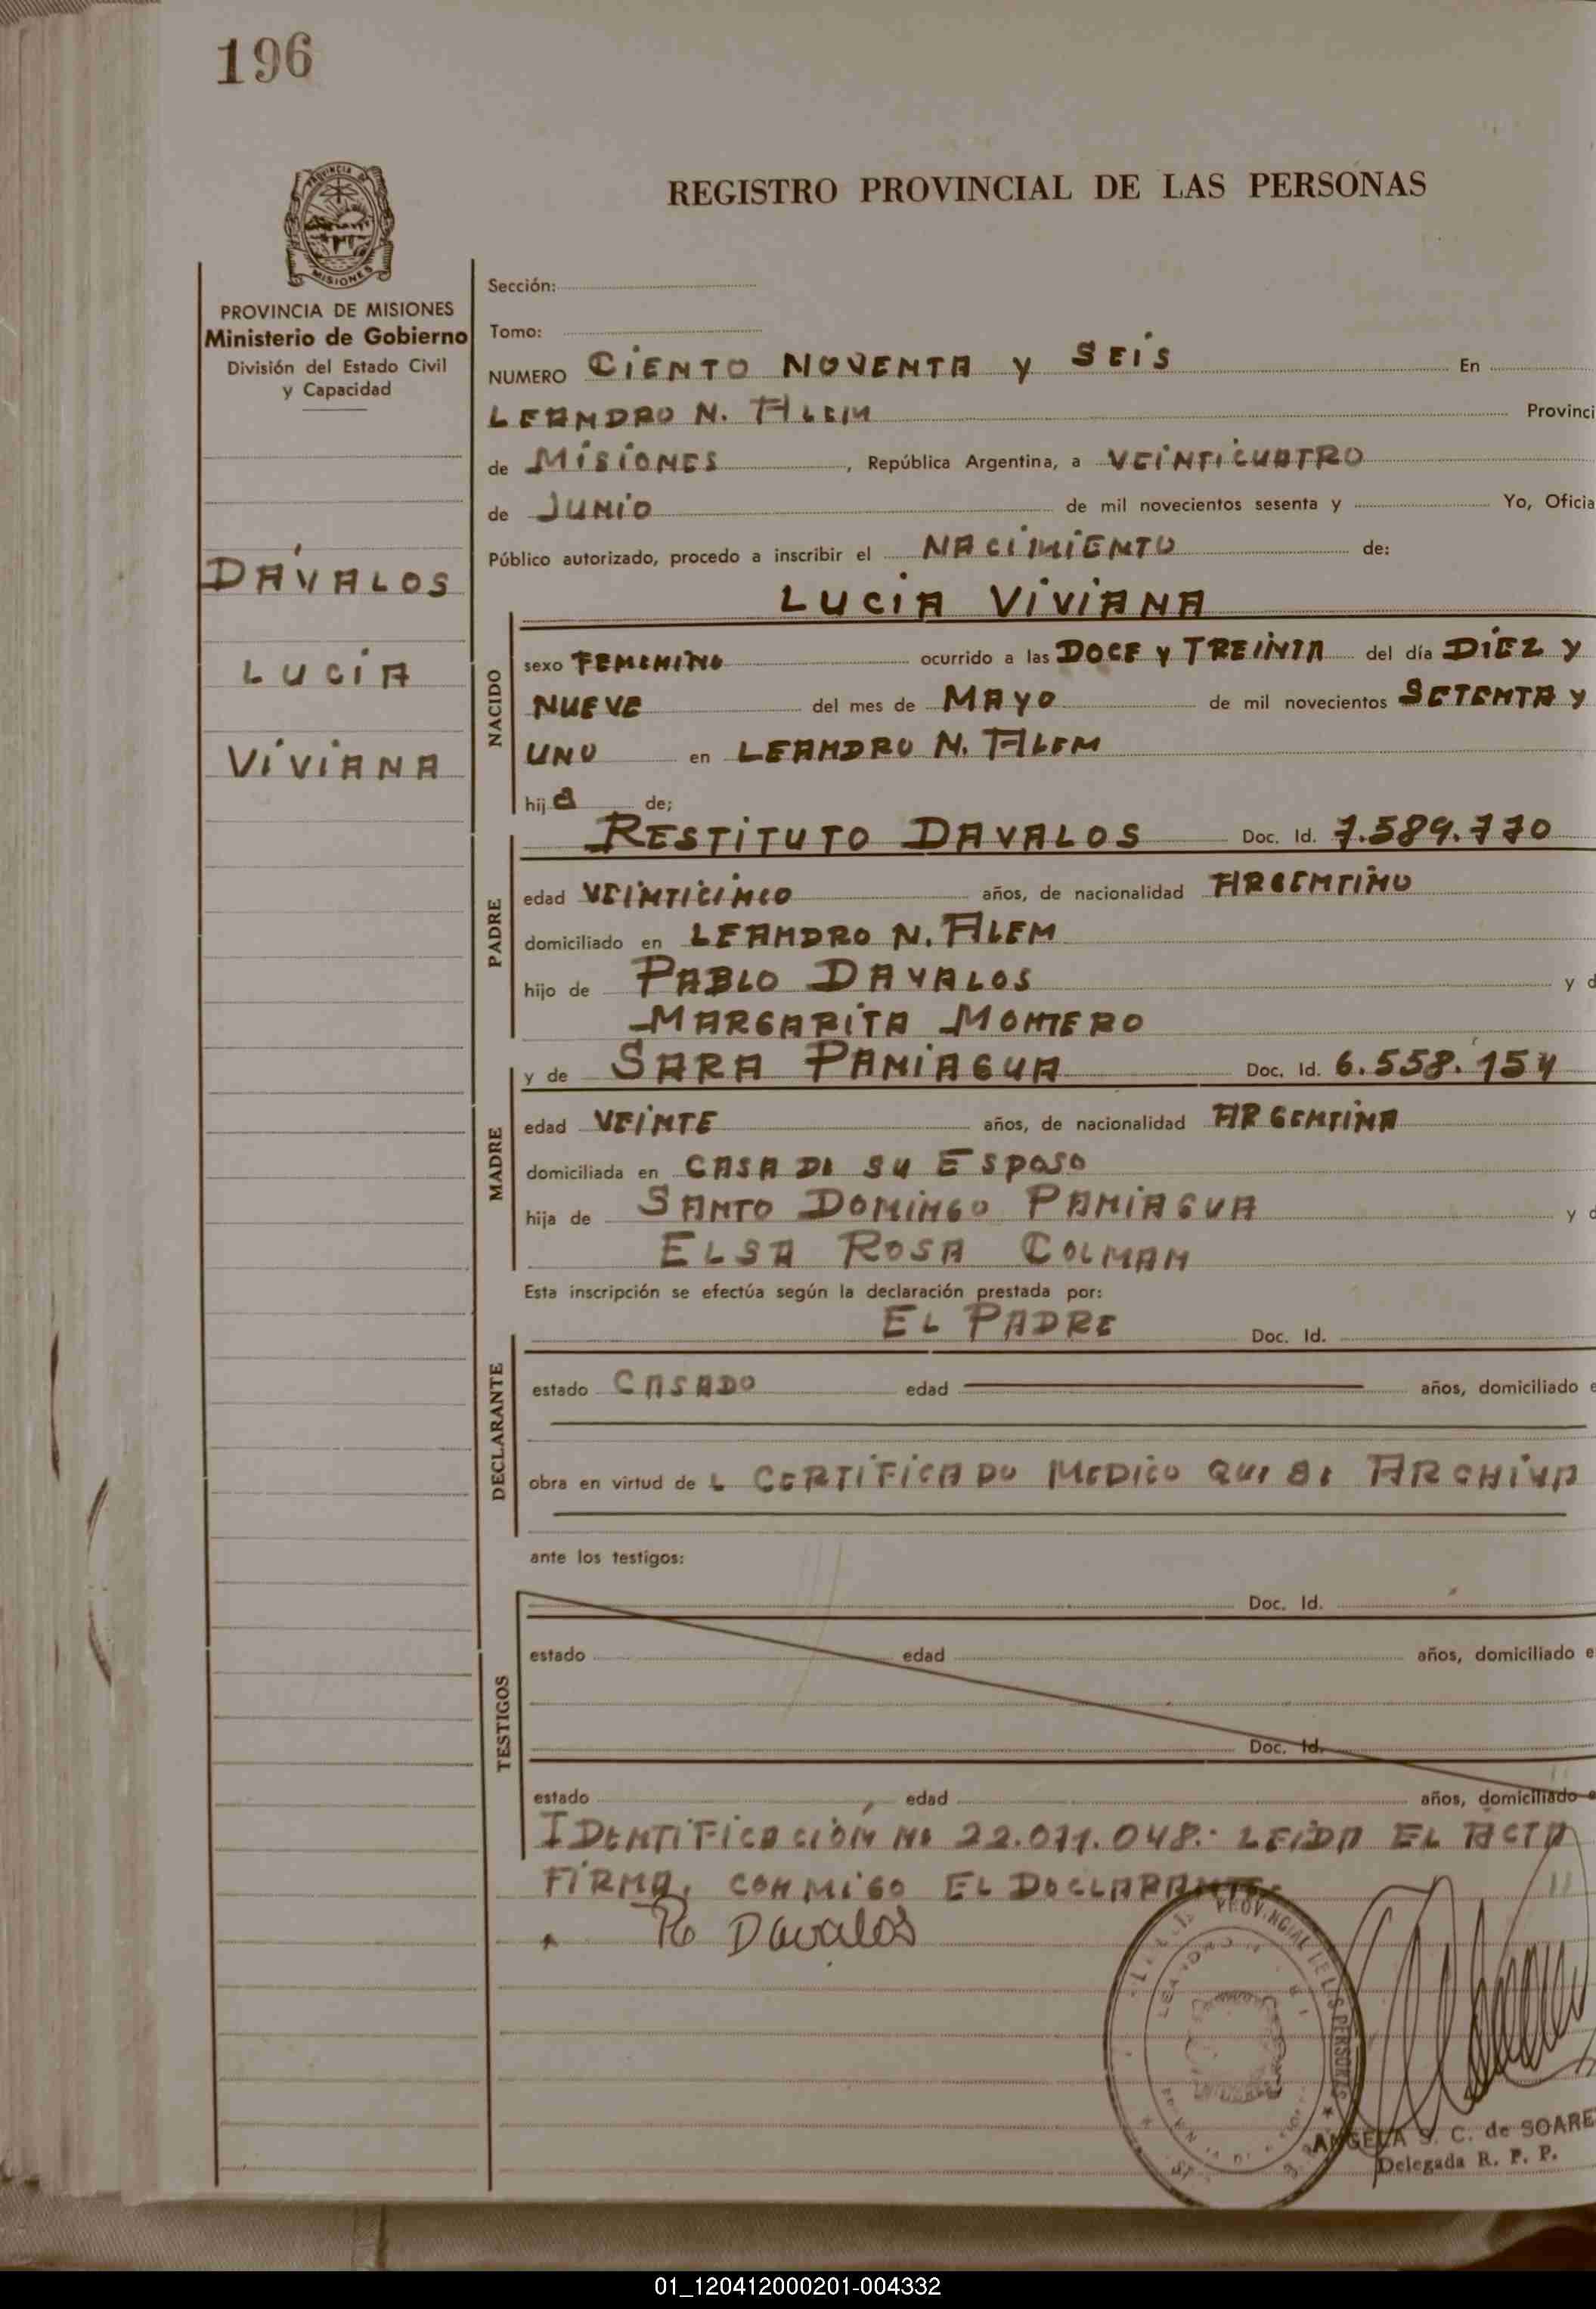 196
REGISTRO PROVINCIAL DE LAS PERSONAS
PROVINCIA DE MISIONES
Ministerio de Gobierno
División del Estado Civil
y Capacidad
DÁVALOS
LUCIA
VIVIANA
Sección:
Tomo:
NUMERO CIENTO NOVENTA y SEIS En
LEANDRO N. ALEM Provinci
de MISIONES , República Argentina, a VEINTICUATRO
de JUNIO de mil novecientos sesenta y Yo, Oficia
Público autorizado, procedo a inscribir el NACIMIENTO de:
LUCIA VIVIANA
NACIDO
sexo FEMENINO ocurrido a las DOCE y TREINTA del día DIEZ y
NUEVE del mes de MAYO de mil novecientos SETENTA y
UNO en LEANDRO N. ALEM
hij a de;
RESTITUTO DAVALOS Doc. Id. 7.589.770
PADRE
edad VEINTICINCO años, de nacionalidad ARGENTINO
domiciliado en LEANDRO N. ALEM
hijo de PABLO DAVALOS y d
MARGARITA MONTERO
y de SARA PANIAGUA Doc. Id. 6.558.154
MADRE
edad VEINTE años, de nacionalidad ARGENTINA
domiciliada en CASA DE SU ESPOSO
hija de SANTO DOMINGO PANIAGUA y d
ELSA ROSA COLMAN
Esta inscripción se efectúa según la declaración prestada por:
EL PADRE Doc. Id.
DECLARANTE
estado CASADO edad años, domiciliado e
obra en virtud de L CERTIFICADO MEDICO QUE SE ARCHIVA
ante los testigos:
TESTIGOS
Doc. Id.
estado edad años, domiciliado e
Doc. Id.
estado edad años, domiciliado e
IDENTIFICACIÓN No 22.071.048.- LEIDA EL ACTA
FIRMA, CONMIGO EL DECLARANTE.-
Davalos
PROVINCIAL DE LAS PERSONAS
ANGELA S. C. de SOARE
Delegada R. P. P.
01_120412000201-004332